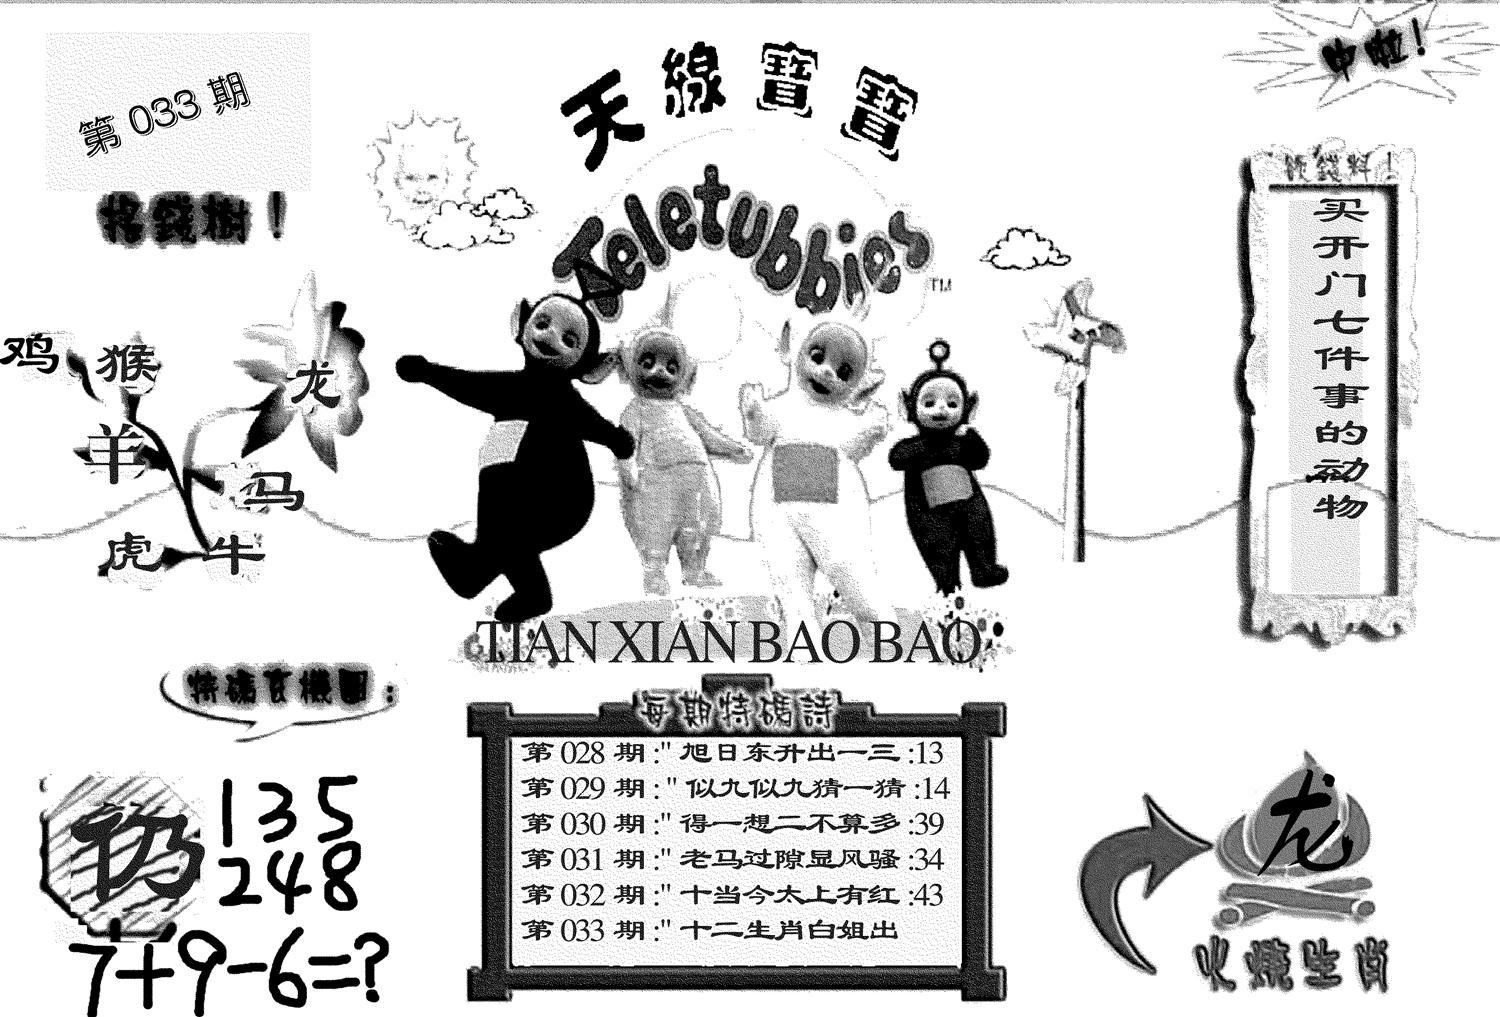 第 033 期
搖錢樹！
鸡
猴
龙
羊
马
虎
牛
天線寶寶
Teletubbies
TM
TIAN XIAN BAO BAO
中啦！
錢料！
买开门七件事的动物
特碼玄機圖：
135
248
7+9-6=?
每期特碼詩
第 028 期:" 旭日东升出一三 :13
第 029 期:" 似九似九猜一猜 :14
第 030 期:" 得一想二不算多 :39
第 031 期:" 老马过隙显风骚 :34
第 032 期:" 十当今太上有红 :43
第 033 期:" 十二生肖白姐出
龙
火燒生肖